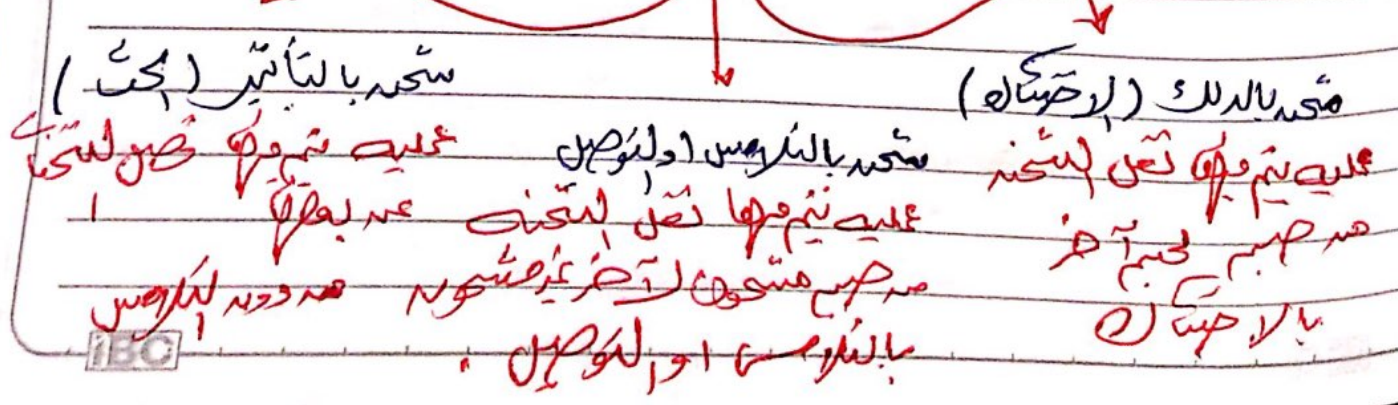 شحن بالدلك (الاحتكاك)
عملية يتم فيها نقل الشحنة
من جسم لجسم آخر
بالاحتكاك
شحن بالتلامس او التوصيل
عملية يتم فيها نقل الشحنة
من جسم مشحون لآخر غير مشحون
بالتلامس او التوصيل .
شحن بالتأثير (الحث)
عملية يتم فيها فصل الشحنات
عن بعضها
من دون التلامس
iBC